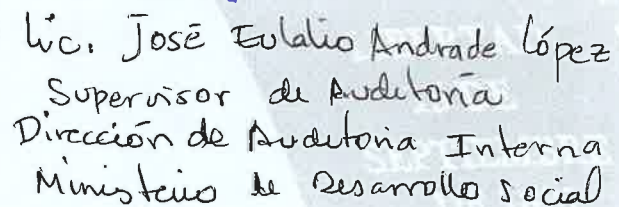 Lic. José Eulalio Andrade López
Supervisor de Auditoría
Dirección de Auditoria Interna
Ministerio de Desarrollo Social